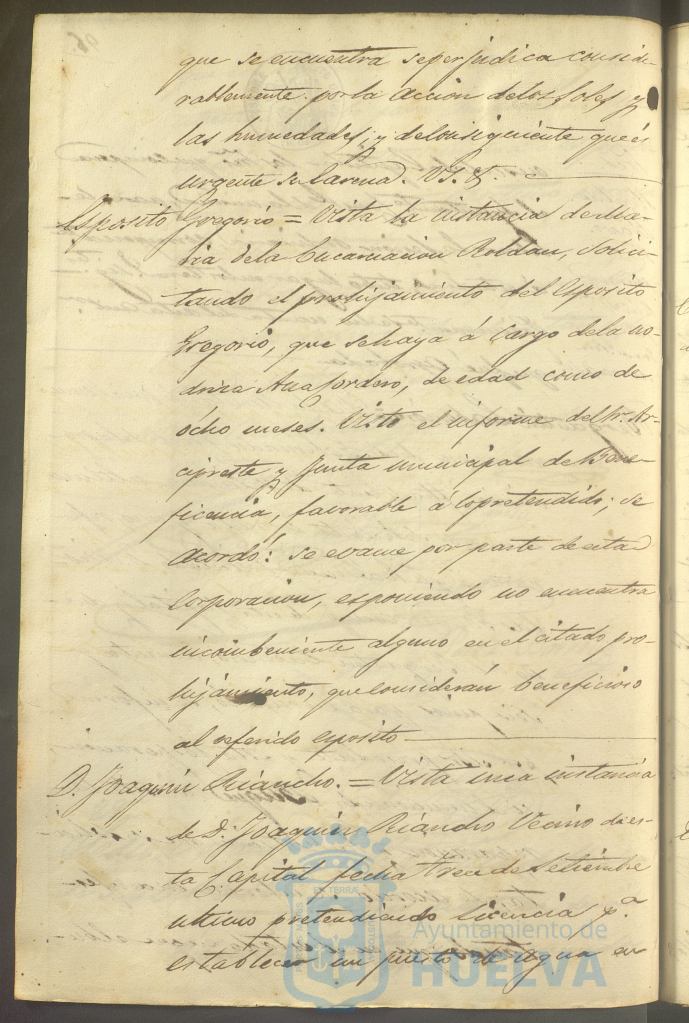 que se encuentra se perjudica conside-
rablemente por la accion de los soles y
las humedades; y de consiguiente que es
urgente su
Esposito Gregorio = Vista la instancia de Ma-
ria de la Encarnacion Roldan, solici-
tando el prohijamiento del Esposito
Gregorio, que se haya á cargo de la no-
driza Ana Cordero, de edad como de
ócho meses. Visto el informe del Sr. Ar-
cipreste y Junta municipal de Bene-
ficencia, favorable á lo pretendido; se
acordó: se evacue por parte de esta
Corporacion, esponiendo no encuentra
incombeniente alguno en el citado pro-
hijamiento, que considerán beneficioso
al referido esposito
D. Joaquin Riancho. = Vista una instancia
de D. Joaquin Riancho Vecino de es-
ta Capital fecha trece de Setiembre
ultimo pretendiendo licencia pa.
establecer un puesto de agua en
Ayuntamiento de
HUELVA